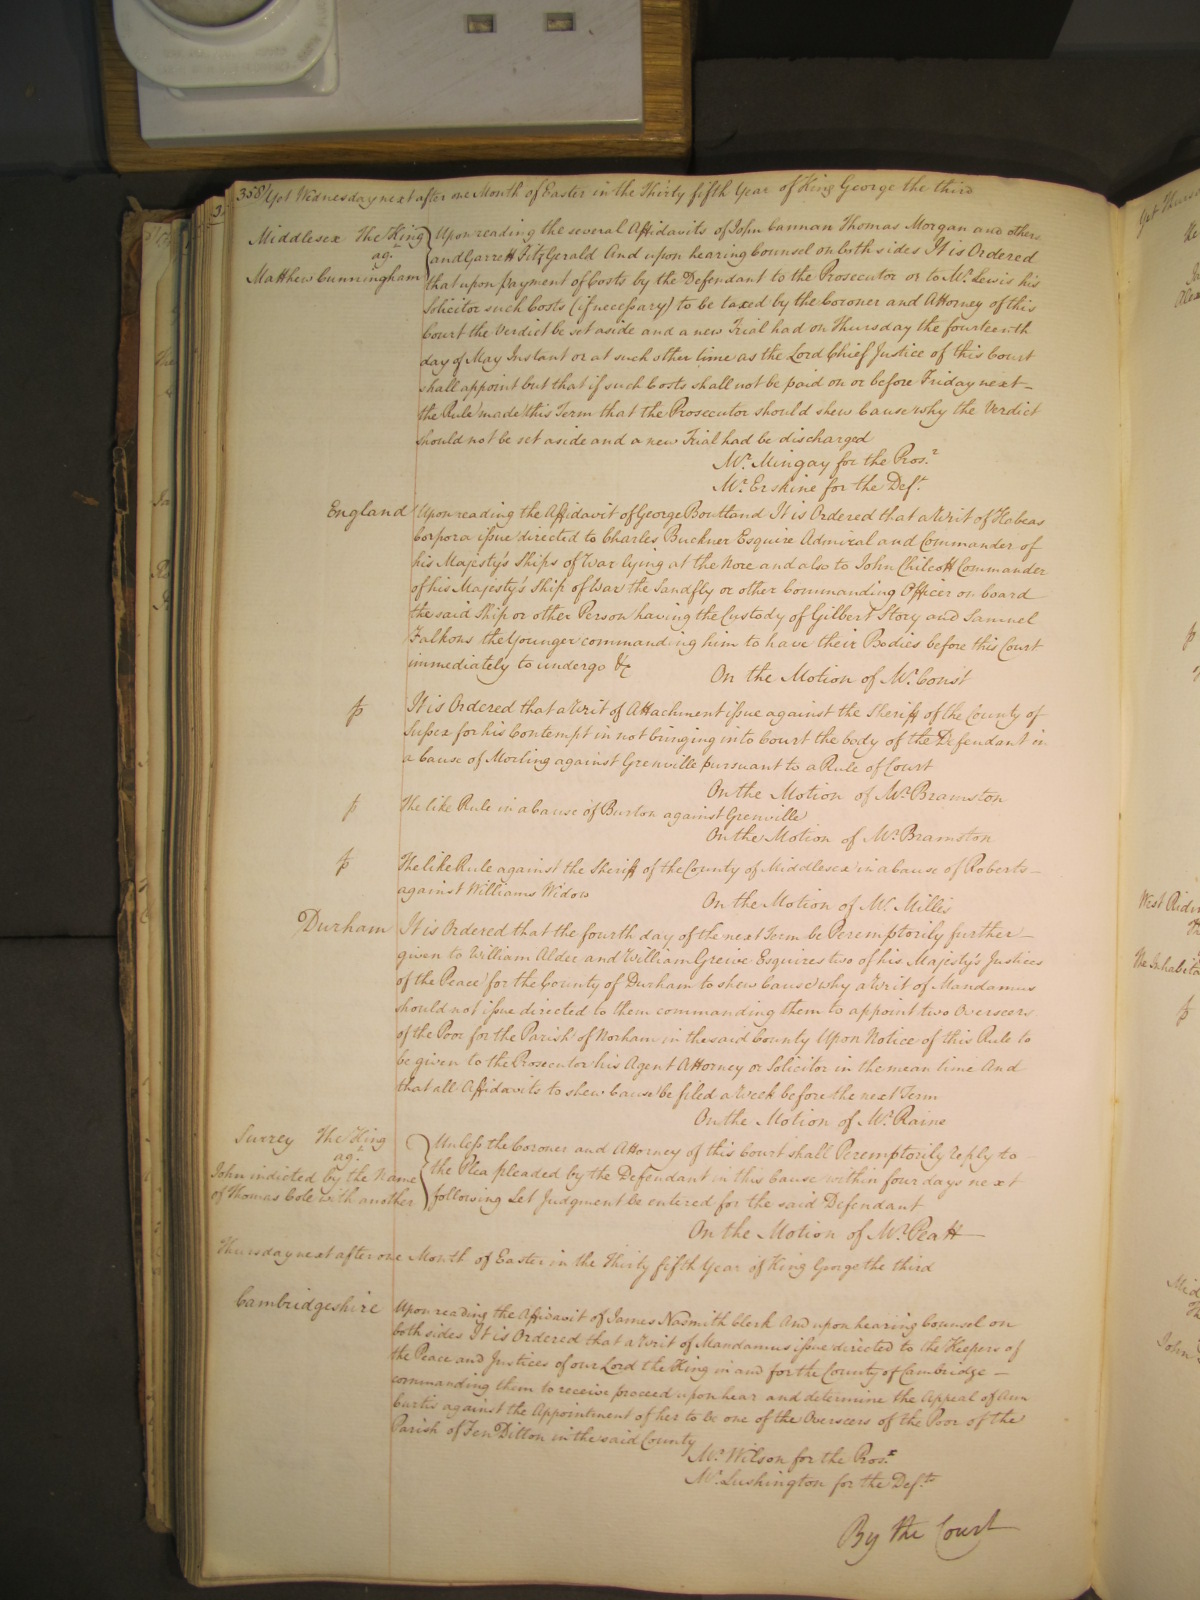 358/ Yet Wednesday next after one Month of Easter in the Thirty fifth Year of King George the third
Middlesex The King
agt.
Matthew Cunningham
Upon reading the several Affidavits of John Cannan Thomas Morgan and others
and Garrett FitzGerald And upon hearing Counsel on both sides It is Ordered
that upon payment of Costs by the Defendant to the Prosecutor or to Mr. Lewis his
Solicitor such Costs (if necessary) to be taxed by the Coroner and Attorney of this
Court the Verdict be set aside and a new Trial had on Thursday the fourteenth
day of May Instant or at such other time as the Lord Chief Justice of this Court
shall appoint but that if such Costs shall not be paid on or before Friday next –
the Rule made this Term that the Prosecutor should shew Cause why the Verdict
should not be set aside and a new Trial had be discharged
Mr. Mingay for the Prosr.
Mr. Erskine for the Deft.
England
Upon reading the Affidavit of George Boultland It is Ordered that a Writ of Habeas
Corpora issue directed to Charles Buckner Esquire Admiral and Commander of
his Majesty's Ships of War lying at the Nore and also to John Chilcott Commander
of his Majesty's Ship of War the Sandfly or other Commanding Officer on board
the said Ship or other Person having the Custody of Gilbert Story and Samuel
Falkous the Younger commanding him to have their Bodies before this Court
immediately to undergo &c
On the Motion of Mr. Const
It is Ordered that a Writ of Attachment issue against the Sheriff of the County of
Sussex for his Contempt in not bringing into Court the body of the Defendant in
a Cause of Morling against Grenville pursuant to a Rule of Court
On the Motion of Mr. Bramston
The like Rule in a Cause of Burton against Grenville
On the Motion of Mr. Bramston
The like Rule against the Sheriff of the County of Middlesex in a Cause of Roberts –
against Williams Widow
On the Motion of Mr. Milles
Durham
It is Ordered that the fourth day of the next Term be Peremptorily further –
given to William Alder and William Greive Esquires two of his Majesty's Justices
of the Peace for the County of Durham to shew Cause why a Writ of Mandamus
should not issue directed to them commanding them to appoint two Overseers
of the Poor for the Parish of Norham in the said County Upon Notice of this Rule to
be given to the Prosecutor his Agent Attorney or Solicitor in the mean time And
that all Affidavits to shew Cause be filed a Week before the next Term
On the Motion of Mr. Raine
Surrey The King
agt.
John indicted by the Name
of Thomas Cole with another
Unless the Coroner and Attorney of this Court shall Peremptorily reply to –
the Plea pleaded by the Defendant in this Cause within four days next
following Let Judgment be entered for the said Defendant
On the Motion of Mr. Peatt
Thursday next after one Month of Easter in the Thirty fifth Year of King George the third
Cambridgeshire
Upon reading the Affidavit of James Nasmith Clerk And upon hearing Counsel on
both sides It is Ordered that a Writ of Mandamus issue directed to the Keepers of
the Peace and Justices of our Lord the King in and for the County of Cambridge –
commanding them to receive proceed upon hear and determine the Appeal of Ann
Curtis against the Appointment of her to be one of the Overseers of the Poor of the
Parish of Fen Ditton in the said County
Mr. Wilson for the Prosr.
Mr. Lushington for the Defts.
By the Court